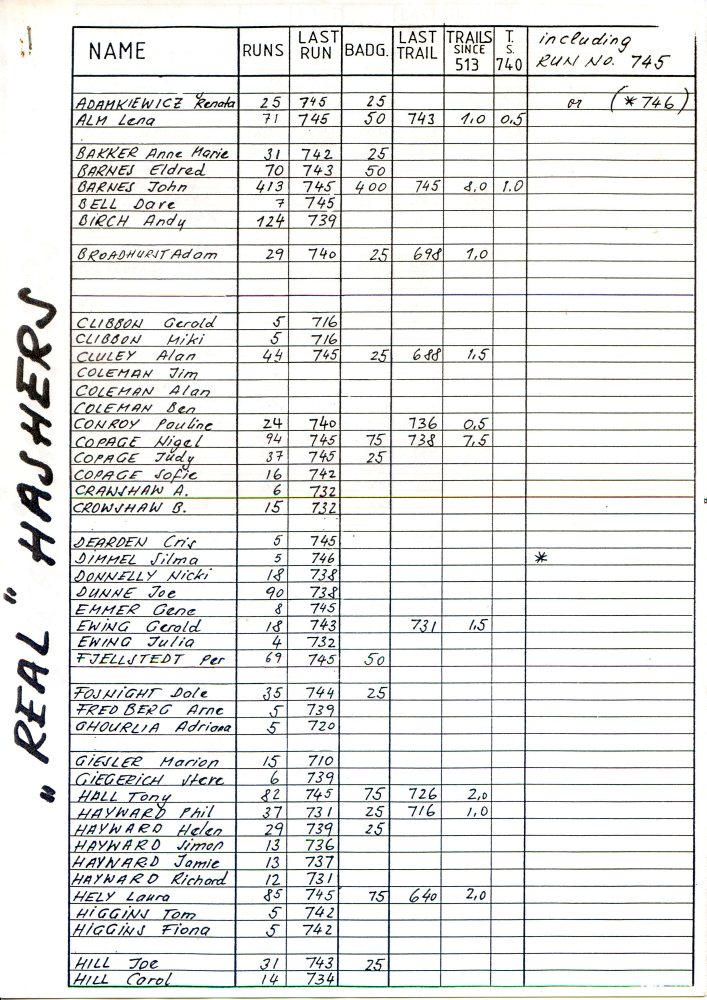 NAME RUNS LAST RUN BADG. LAST TRAIL TRAILS SINCE 513 T. S. 740 including RUN No. 745
ADAMKIEWICZ Renata 25 745 25 or (*746)
ALM Lena 71 745 50 743 1,0 0,5
BAKKER Anne Marie 31 742 25
BARNES Eldred 70 743 50
BARNES John 413 745 400 745 8,0 1.0
BELL Dave 7 745
BIRCH Andy 124 739
BROADHURST Adam 29 740 25 698 1,0
CLIBBON Gerold 5 716
CLIBBON Miki 5 716
CLULEY Alan 44 745 25 688 1,5
COLEMAN Jim
COLEMAN Alan
COLEMAN Ben
CONROY Pauline 24 740 736 0,5
COPAGE Nigel 94 745 75 738 7,5
COPAGE Judy 37 745 25
COPAGE Sofie 16 742
CRANSHAW A. 6 732
CROWSHAW B. 15 732
DEARDEN Cris 5 745
DIMMEL Silma 5 746 *
DONNELLY Nicki 18 738
DUNNE Joe 90 738
EMMER Gene 8 745
EWING Gerold 18 743 731 1,5
EWING Julia 4 732
FJELLSTEDT Per 69 745 50
FOSNIGHT Dale 35 744 25
FREDBERG Arne 5 739
GHOURLIA Adriana 5 720
GIESLER Marion 15 710
GIEGERICH Steve 6 739
HALL Tony 82 745 75 726 2,0
HAYWARD Phil 37 731 25 716 1,0
HAYWARD Helen 29 739 25
HAYWARD Simon 13 736
HAYWARD Jamie 13 737
HAYWARD Richard 12 731
HELY Laura 85 745 75 640 2,0
HIGGINS Tom 5 742
HIGGINS Fiona 5 742
HILL Joe 31 743 25
HILL Carol 14 734
"REAL" HASHERS